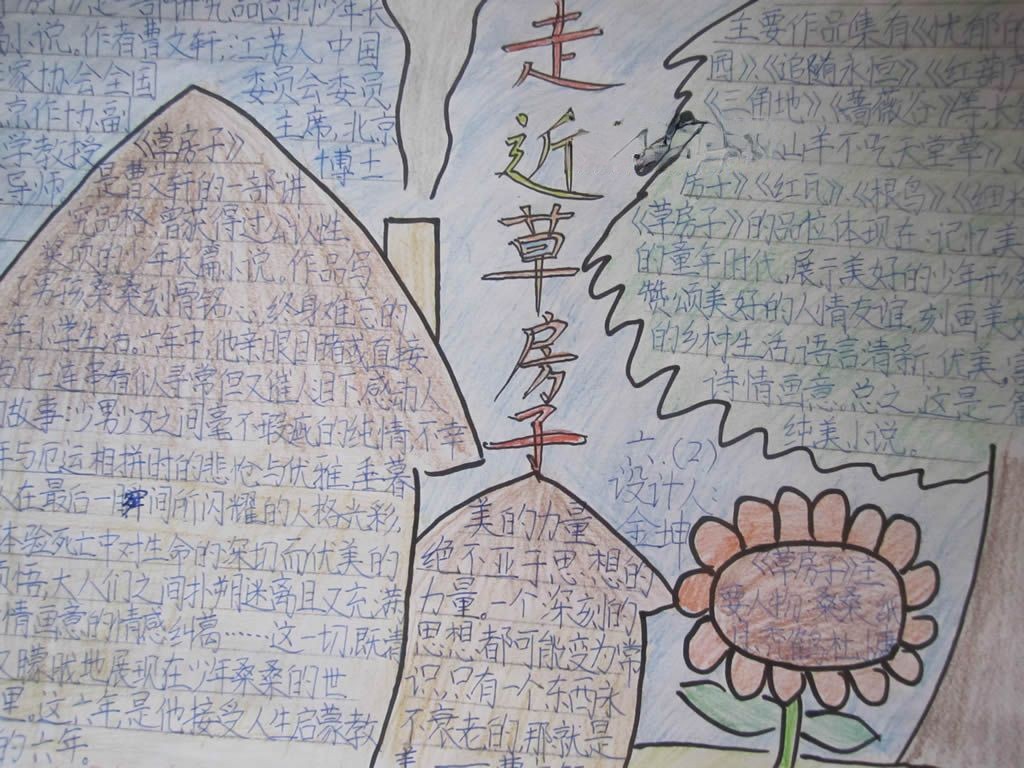 走近草房子
小说。作者曹文轩,江苏人,中国
作家协会全国 委员会委员
京作协副 主席,北京
学教授 博士
导师
《草房子》
是曹文轩的一部讲
究品格曾获得过公认性
奖项的 年长篇小说。作品写
男孩桑桑刻骨铭心、终身难忘的
年小学生活。六年中,他亲眼目睹或直接
一连串看似寻常但又催人泪下感动人
故事:少男少女之间毫不瑕疵的纯情,不幸
与厄运相拼时的悲怆与优雅,垂暮
在最后一瞬间所闪耀的人格光彩,
体验死亡中对生命的深切而优美的
悟,大人们之间扑朔迷离且又充满
情画意的情感纠葛……这一切,既清
又朦胧地展现在少年桑桑的世
里。这六年,是他接受人生启蒙教
的六年。
主要作品集有《忧郁的
园》、《追随永恒》、《红葫
《三角地》、《蔷薇谷》等长
山羊不吃天堂草》、
《红瓦》、《根鸟》、《细米
《草房子》的品位体现在:记忆美
的童年时代,展示美好的少年
赞颂美好的人情友谊,刻画美
的乡村生活,语言清新、优美。富
诗情画意,总之,这是一
纯美小说。
六.(2)
设计人:
金坤
美的力量
绝不亚于思想的
力量。一个深刻的
思想都可能变为常
识,只有一个东西永
不衰老的,那就是
美
《草房子》主
要人物:桑桑、
秃鹤、杜小康